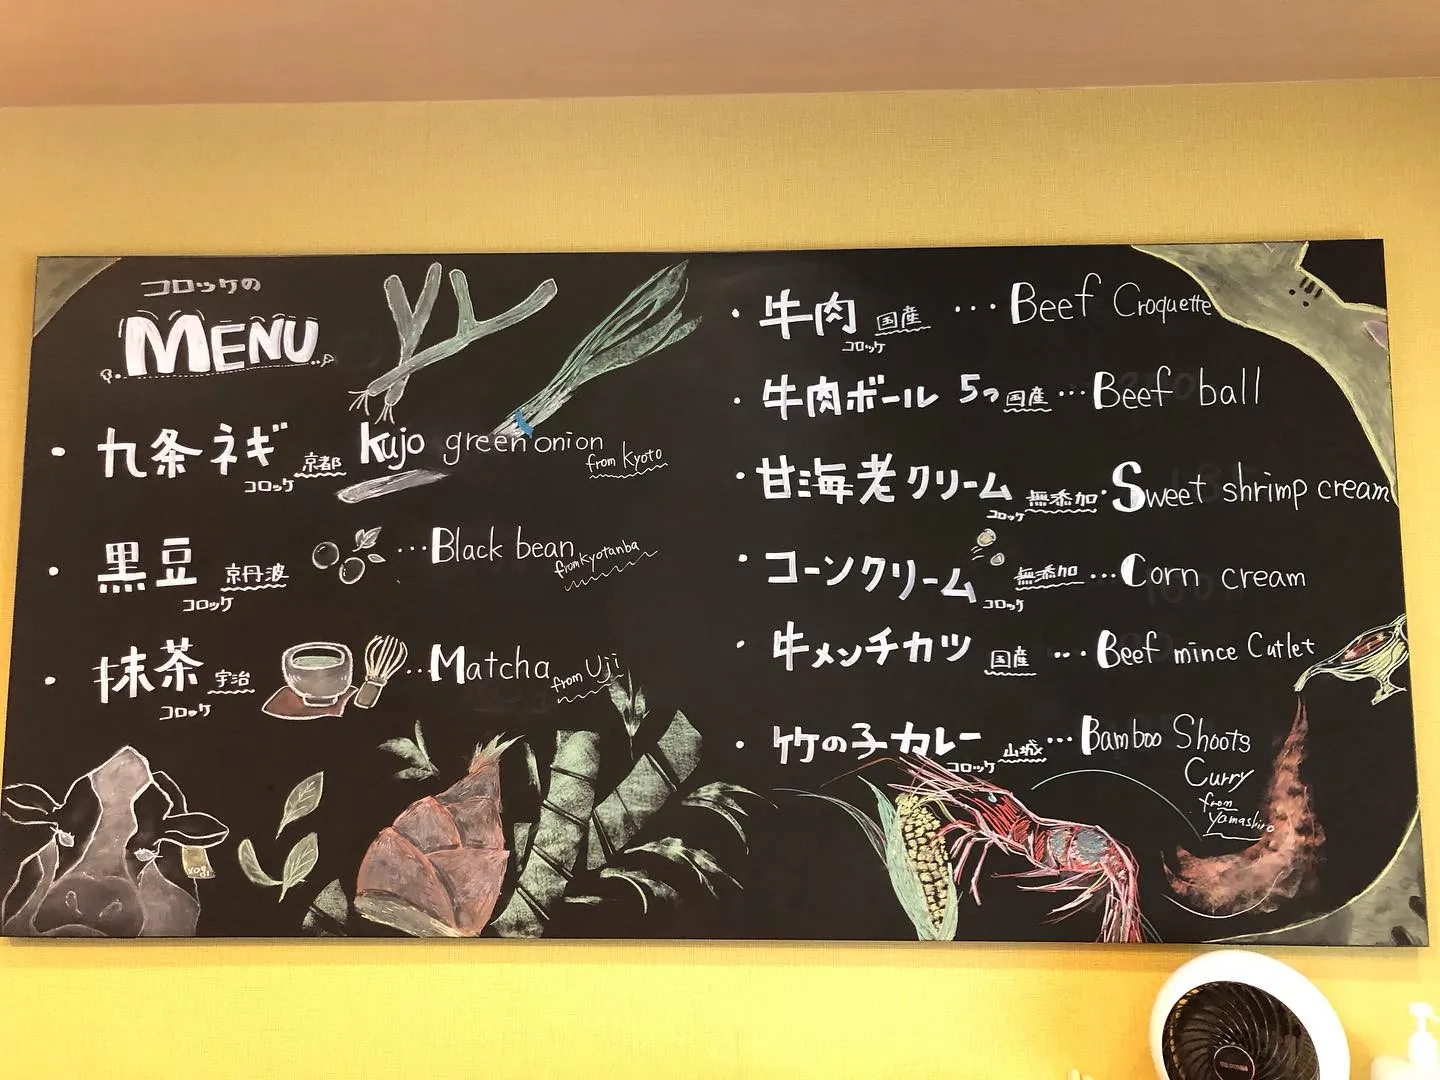 コロッケの
MENU
・九条ネギ 京都 コロッケ Kujo green onion from Kyoto
・黒豆 京丹波 コロッケ ...Black bean from Kyotanba
・抹茶 宇治 コロッケ ...Matcha from Uji
・牛肉 国産 コロッケ ...Beef Croquette
・牛肉ボール 5つ 国産 ...Beef ball
・甘海老クリーム コロッケ 無添加 ・Sweet shrimp cream
・コーンクリーム コロッケ 無添加 ...Corn cream
・牛メンチカツ 国産 ...Beef mince Cutlet
・竹の子カレー コロッケ 山城 ...Bamboo Shoots
Curry
from
Yamashiro